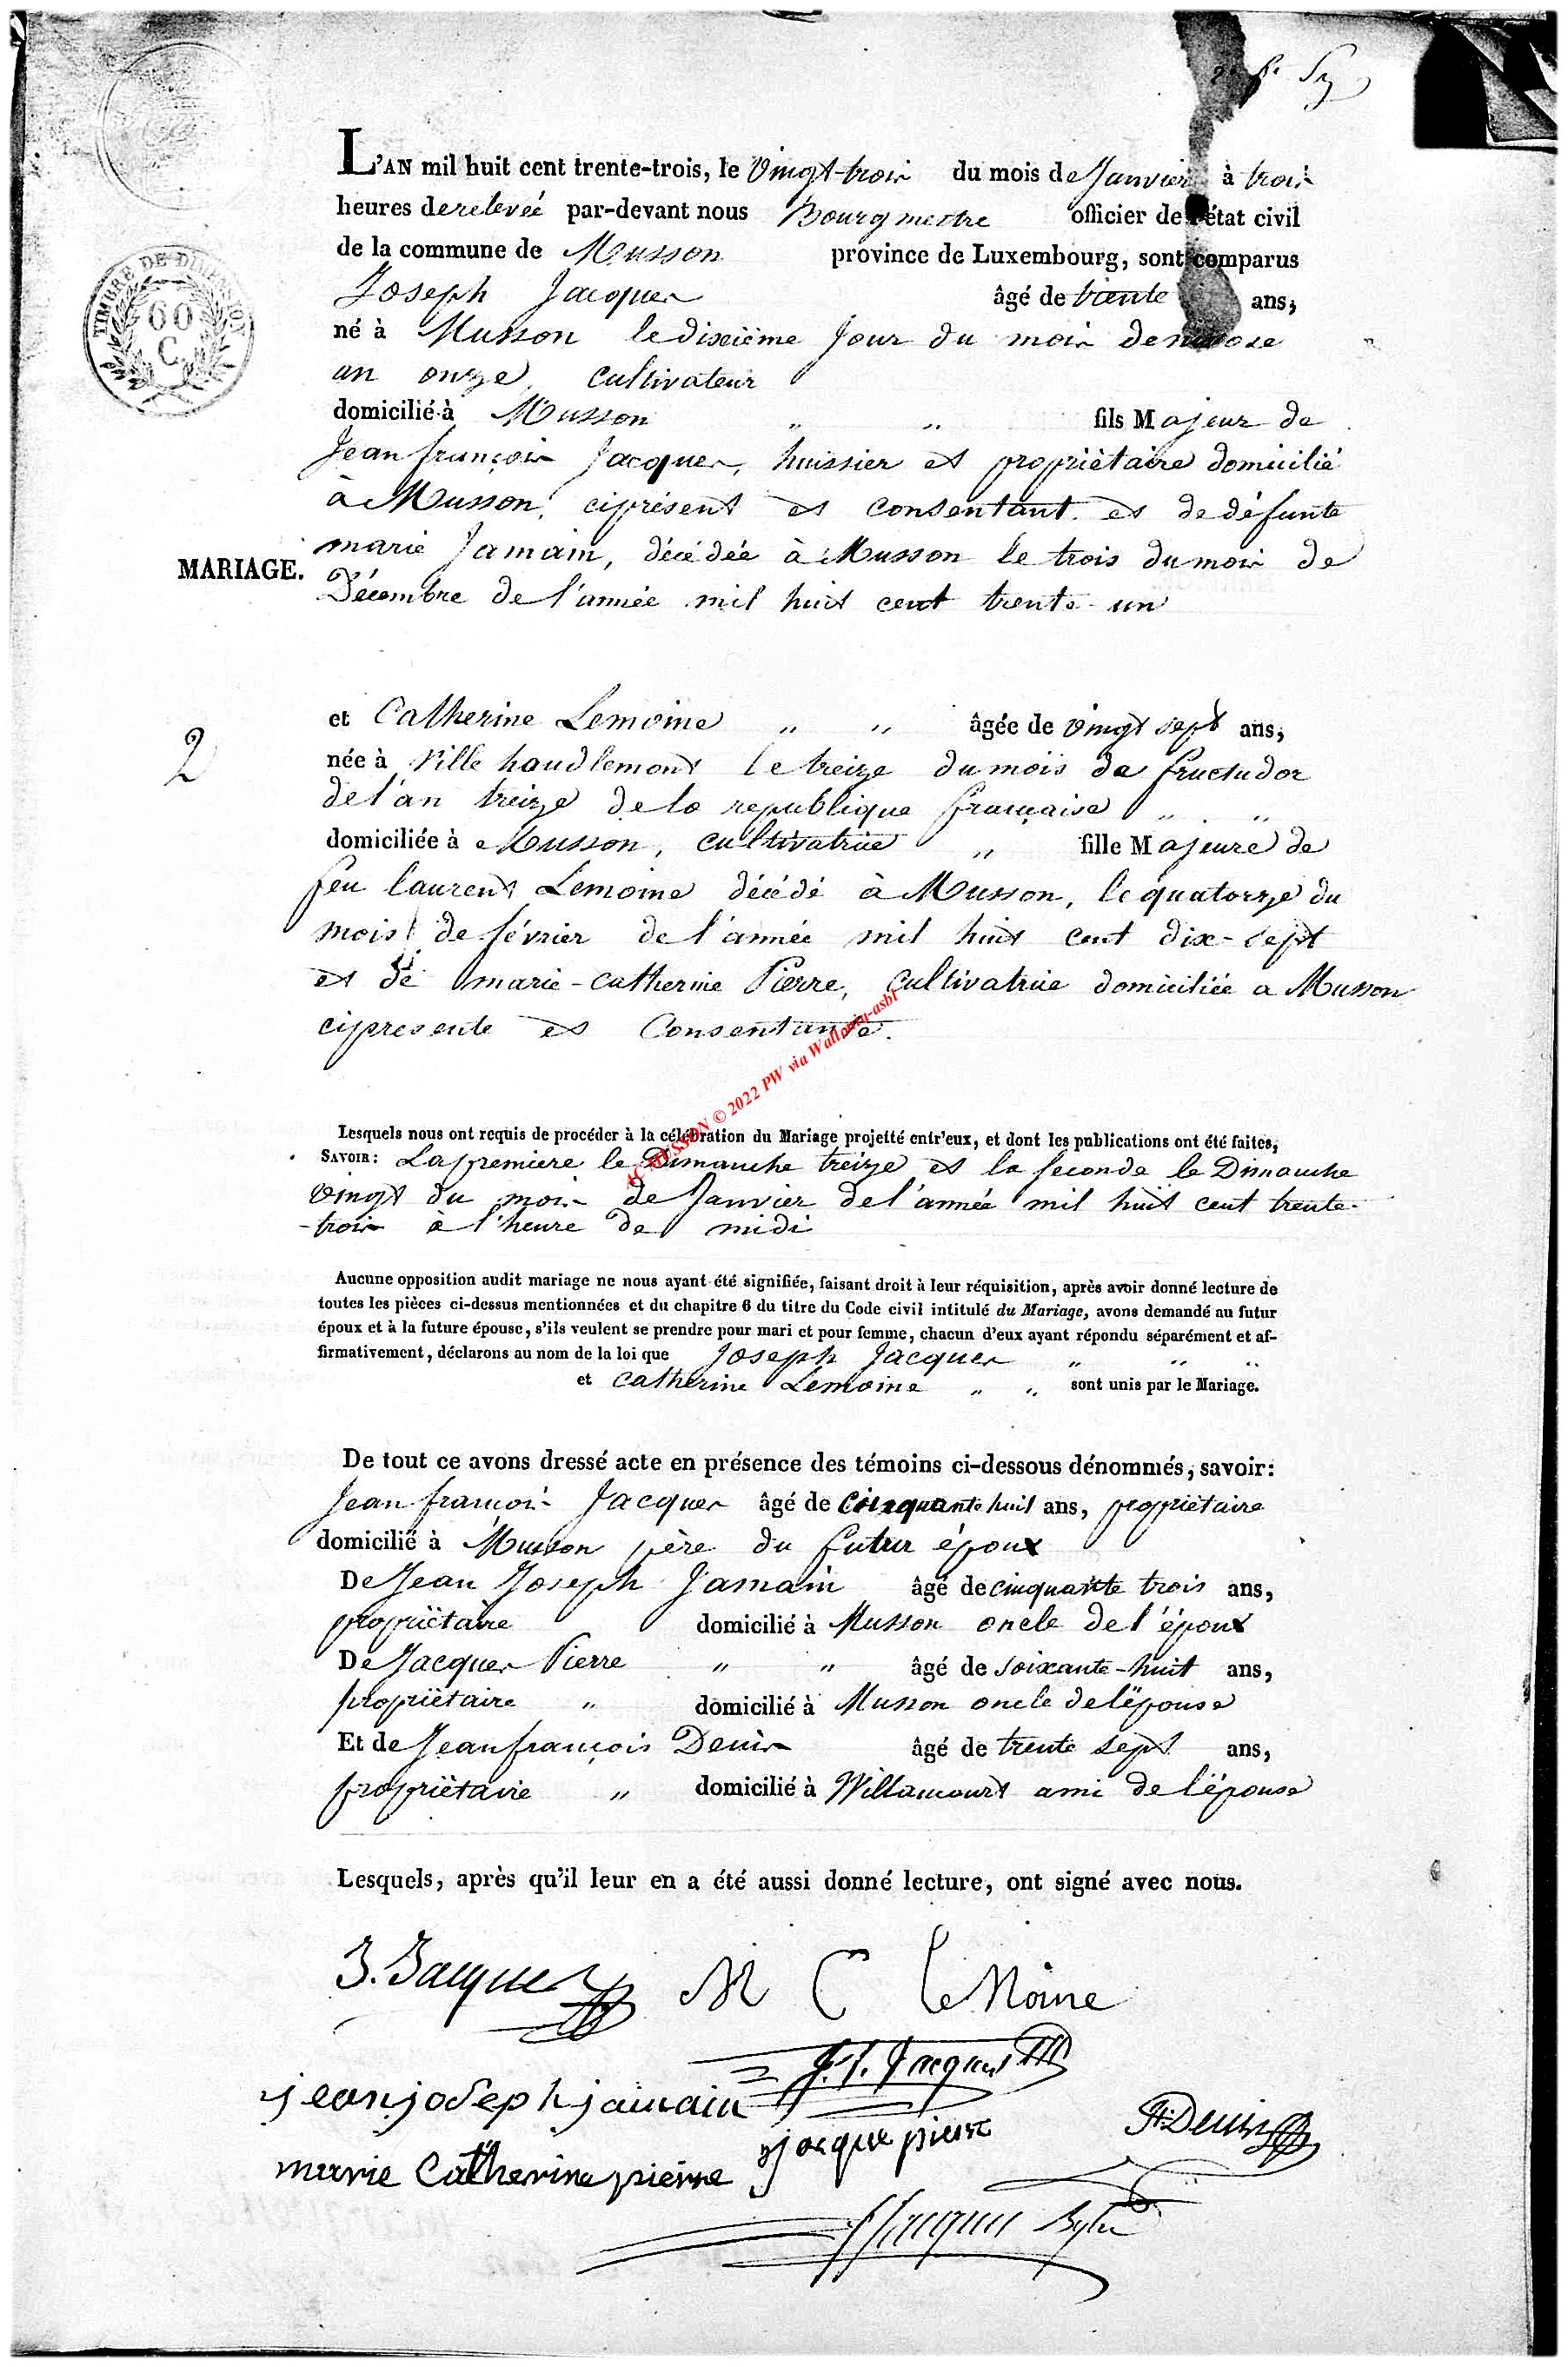 L'AN mil huit cent trente-trois, le Vingt-trois du mois de Janvier à trois
heures de relevée par-devant nous Bourgmestre officier de l'état civil
de la commune de Musson province de Luxembourg, sont comparus
Joseph Jacques âgé de trente ans,
né à Musson le dixième Jour du mois de nivose
an onze, cultivateur
domicilié à Musson " " fils Majeur de
Jean françois Jacques, huissier et propriètaire domicilié
à Musson, ciprésent et consentant et de défunte
marie Jamain, décédée à Musson le trois du mois de
Décembre de l'année mil huit cent trente-un
MARIAGE.
2
et Catherine Lemoine " " âgée de vingt sept ans,
née à Ville houdlemont le treize du mois de fructudor
de l'an treize de la republique française " "
domiciliée à Musson, cultivatrice " fille Majeure de
feu laurent Lemoine décédé à Musson, le quatorze du
mois de février de l'année mil huit cent dix-sept
et de marie-catherine Pierre, Cultivatrice domiciliée a Musson
cipresente et Consentante.
Lesquels nous ont requis de procéder à la célébration du Mariage projetté entr'eux, et dont les publications ont été faites,
SAVOIR: La premiere le Dimanche treize et la seconde le Dimanche
vingt du mois de Janvier de l'année mil huit cent trente-
-trois à l'heure de midi
Aucune opposition audit mariage ne nous ayant été signifiée, faisant droit à leur réquisition, après avoir donné lecture de
toutes les pièces ci-dessus mentionnées et du chapitre 6 du titre du Code civil intitulé du Mariage, avons demandé au futur
époux et à la future épouse, s'ils veulent se prendre pour mari et pour femme, chacun d'eux ayant répondu séparément et af-
firmativement, déclarons au nom de la loi que Joseph Jacques " " "
et Catherine Lemoine " " sont unis par le Mariage.
De tout ce avons dressé acte en présence des témoins ci-dessous dénommés, savoir:
Jean françois Jacques âgé de Cinquante huit ans, propriètaire
domicilié à Musson père du futur époux
De Jean Joseph Jamain âgé de cinquante trois ans,
propriètaire domicilié à Musson oncle de l'époux
De Jacques Pierre " " âgé de soixante-huit ans,
propriètaire " domicilié à Musson oncle de l'épouse
Et de Jean françois Denis âgé de trente sept ans,
propriètaire " domicilié à Willancourt ami de l'épouse
Lesquels, après qu'il leur en a été aussi donné lecture, ont signé avec nous.
J. Jacques M C le Moine
J. f. Jacques
jean joseph jamain
jacque pierre
Denis
marie Catherine pierre
Jacques
TIMBRE DE DIMENSION
60
C.
AC MUSSON © 2022 PW via Wallonia-asbl